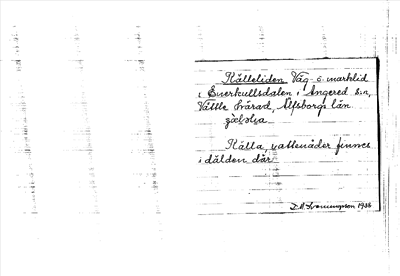 Källeliden Väg o. marklid
i Enerkullsdalen i Angered sn,
Vättle härad, Älfsborgs län.
Källa, vattenåder finnes
i dälden där
D. A. Svenningson 1926